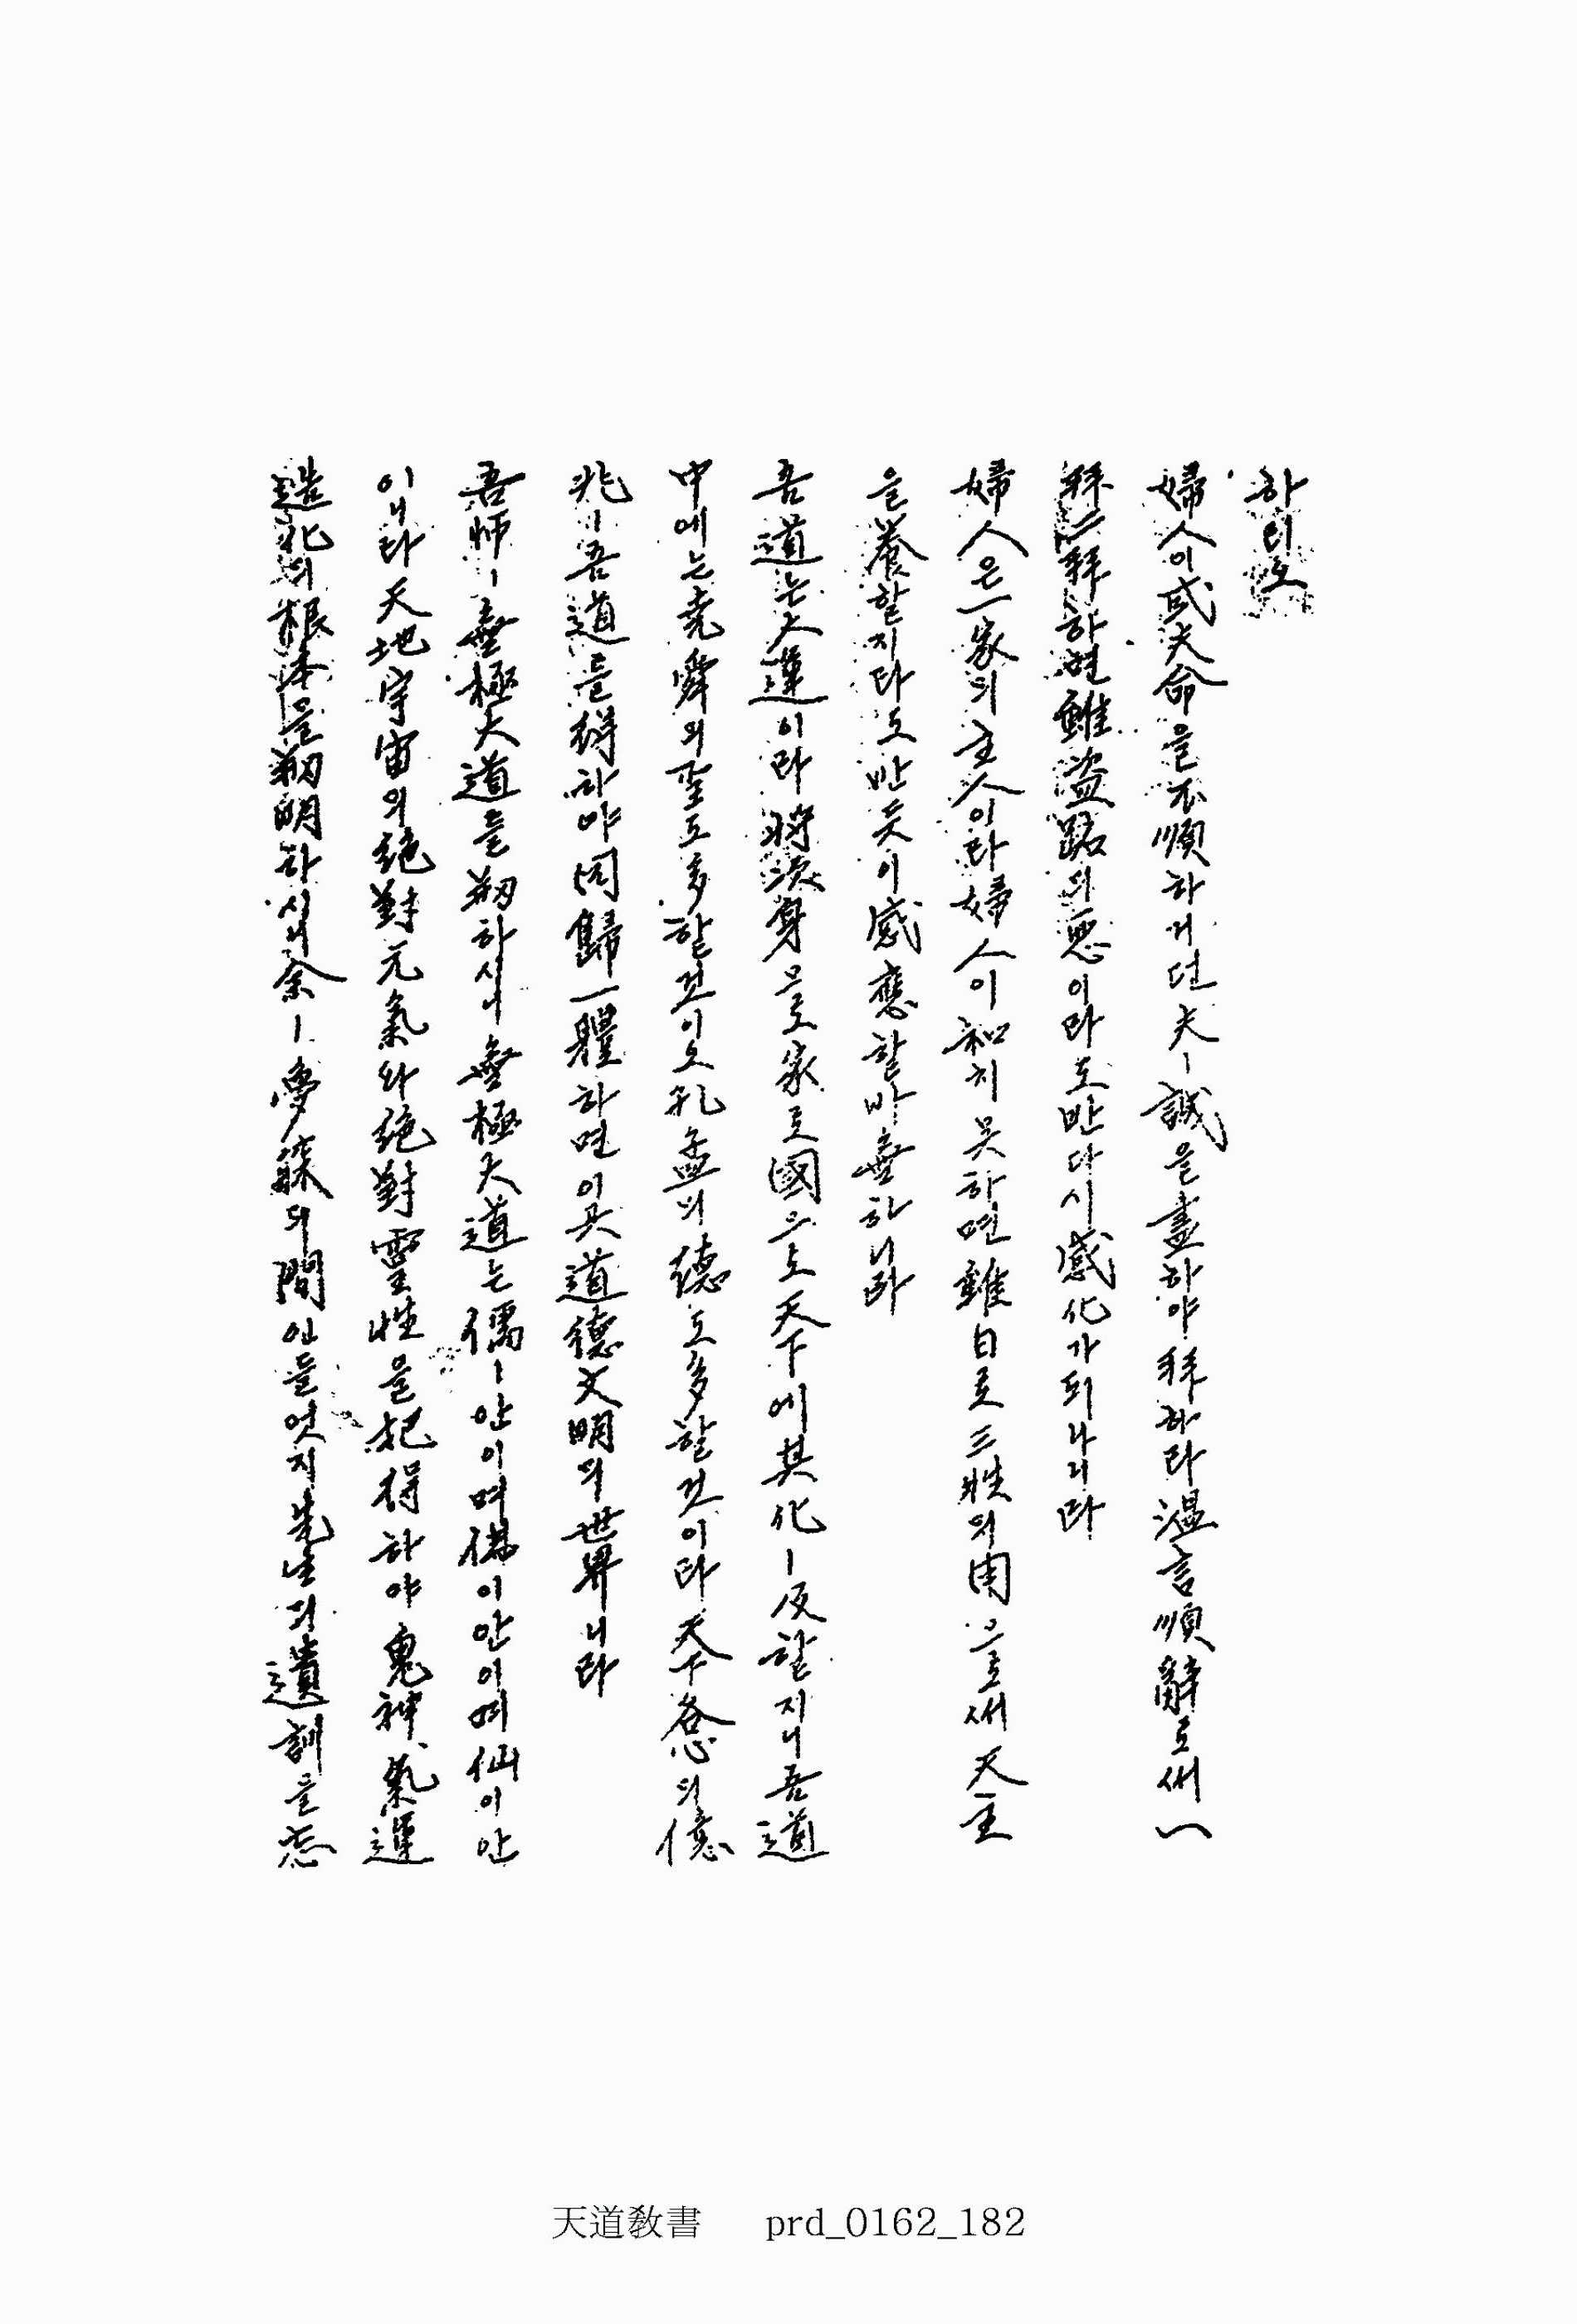 하더로
婦人이 或夫命을 不順하거던 夫ㅣ誠을 盡하야 拜하라 溫言順辭로써 一
拜二拜하면 雖盜跖의 惡이라도 반다시 感化가 되나니라
婦人은 一家의 主人이라 婦人이 和치 못하면 雖日로 三牲의 用으로써 天主
을 養할지라도 반듯이 感應할바 無하니라
吾道는 大運이라 將次 身으로 家로 國으로 天下에 其化ㅣ及할지니 吾道
中에는 堯舜의 聖도 多할것이오 孔孟의 德도 多할것이라 天下 忩의 億
兆ㅣ吾道를 得하야 同歸一體하면 이 곳 道德文明의 世界니라
吾師ㅣ無極大道를 刱하시니 無極大道는 儒ㅣ안이며 佛이 안이며 仙이 안
이니라 天地宇宙의 絶對元氣와 絶對靈性을 把得하야 鬼神、氣運
造化의 根本을 刱明하시니 余ㅣ夢寐의 間인들 엇지 先生의 遺訓을 忘
天道敎書 prd_0162_182